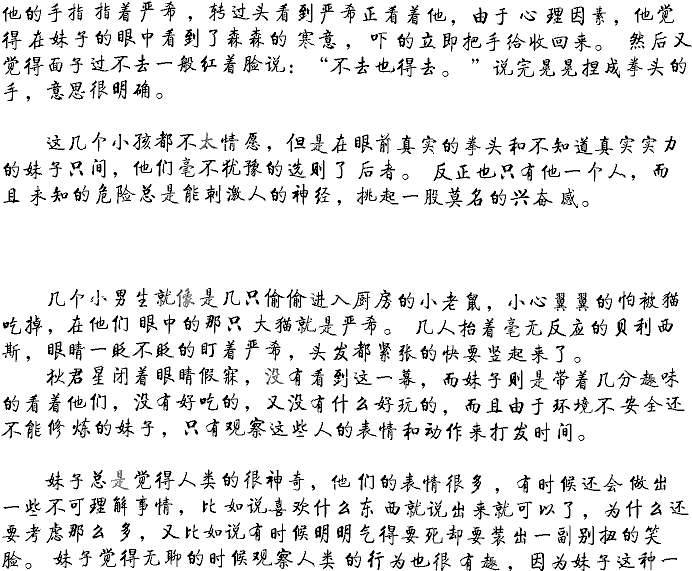 他的手指指着严希，转过头看到严希正看着他，由于心理因素，他觉
得在妹子的眼中看到了森森的寒意，吓的立即把手给收回来。然后又
觉得面子过不去一般红着脸说：“不去也得去。”说完晃晃捏成拳头的
手，意思很明确。
这几个小孩都不太情愿，但是在眼前真实的拳头和不知道真实实力
的妹子只间，他们毫不犹豫的选则了后者。反正也只有他一个人，而
且未知的危险总是能刺激人的神经，挑起一股莫名的兴奋感。
几个小男生就像是几只偷偷进入厨房的小老鼠，小心翼翼的怕被猫
吃掉，在他们眼中的那只大猫就是严希。几人抬着毫无反应的贝利西
斯，眼睛一眨不眨的盯着严希，头发都紧张的快要竖起来了。
秋君星闭着眼睛假寐，没有看到这一幕，而妹子则是带着几分趣味
的看着他们，没有好吃的，又没有什么好玩的，而且由于环境不安全还
不能修炼的妹子，只有观察这些人的表情和动作来打发时间。
妹子总是觉得人类的很神奇，他们的表情很多，有时候还会做出
一些不可理解事情，比如说喜欢什么东西就说出来就可以了，为什么还
要考虑那么多，又比如说有时候明明气得要死却要装出一副别扭的笑
脸。妹子觉得无聊的时候观察人类的行为也很有趣，因为妹子这种一